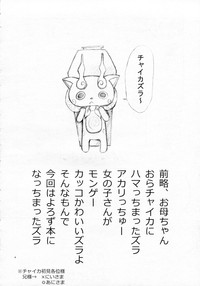 チャイカズラ～
前略、お母ちゃん
おらチャイカに
ハマっちまったズラ
アカリっちゅー
女の子さんが
カッコかわいいズラよ
モンゲー
そんなもんで
今回はよろず本に
なっちまったズラ
※チャイカ初見各位様
兄様→ ×にいさま
○あにさま